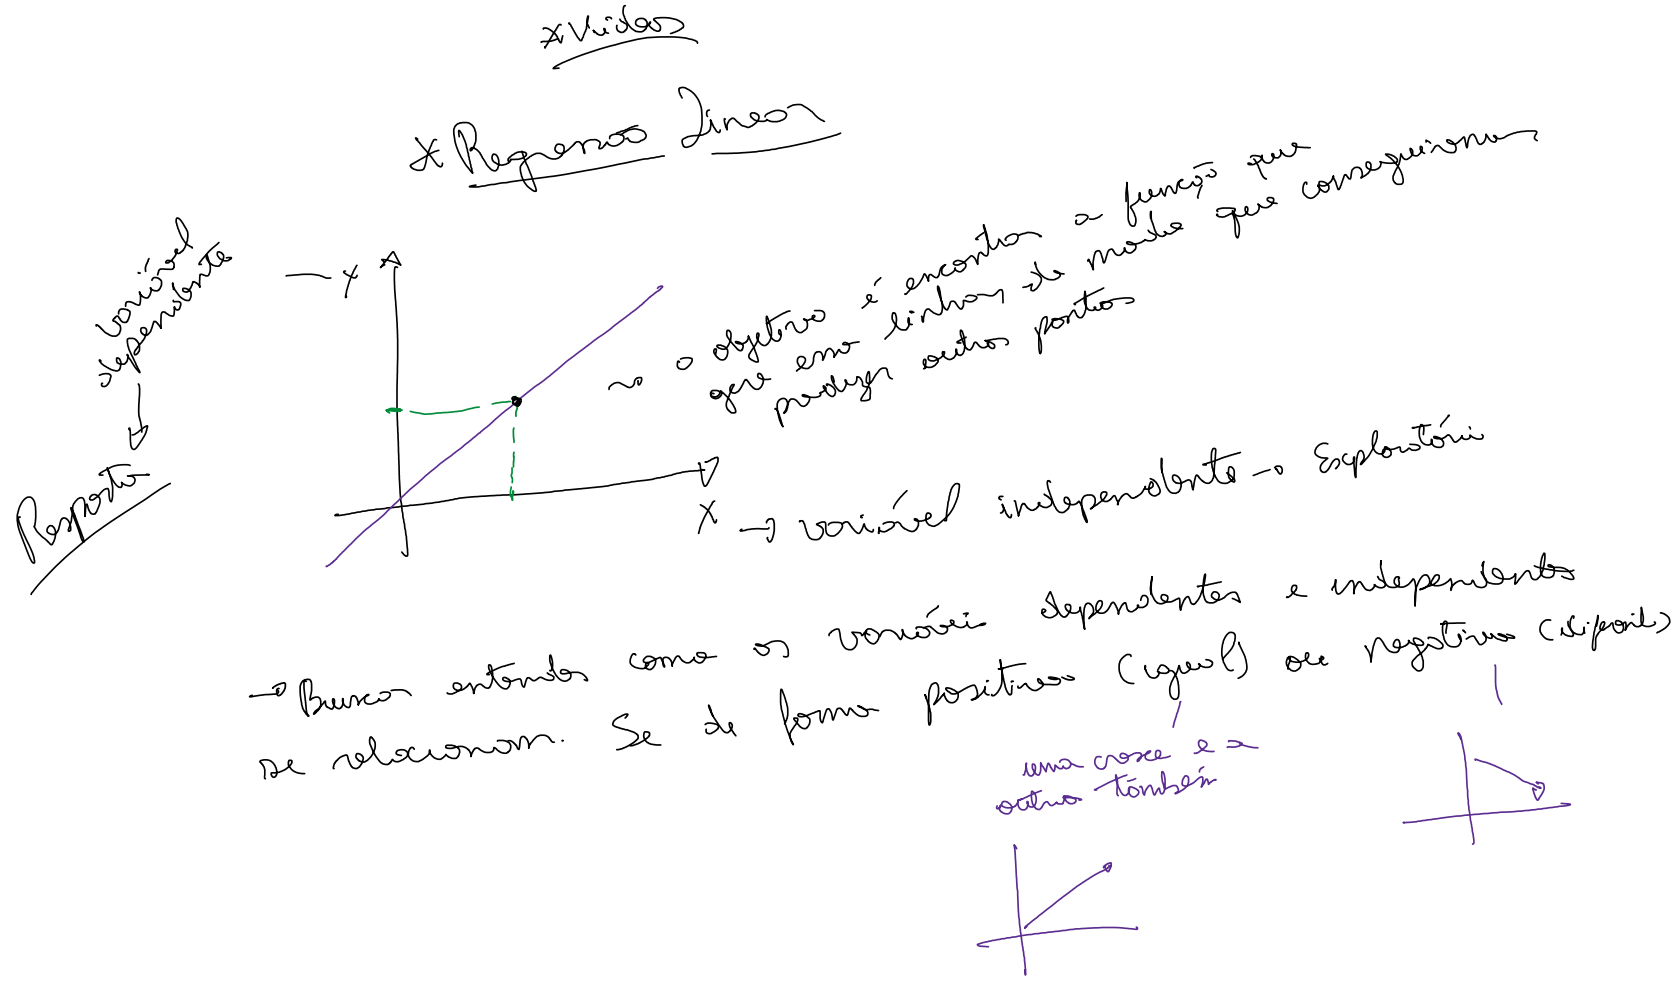 *Vídeos
* Regressão Linear
variável
dependente
Resposta
Y
→ o objetivo é encontrar a função que
gere uma linha, de modo que conseguiremos
predizer outros pontos
X → variável independente → Exploratória
→ Buscar entender como as variáveis dependentes e independentes
se relacionam. Se de forma positiva (igual) ou negativa
uma cresce e a
outra também